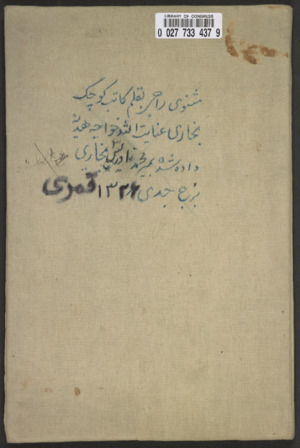 LIBRARY OF CONGRESS
0 027 733 437 9
مثنوی راجی بقلم کاتب کوچک
بخاری عنایت الله خواجه هدیهٔ
داده شد بخاری
برج جدی ۱۳۲۶ قمری